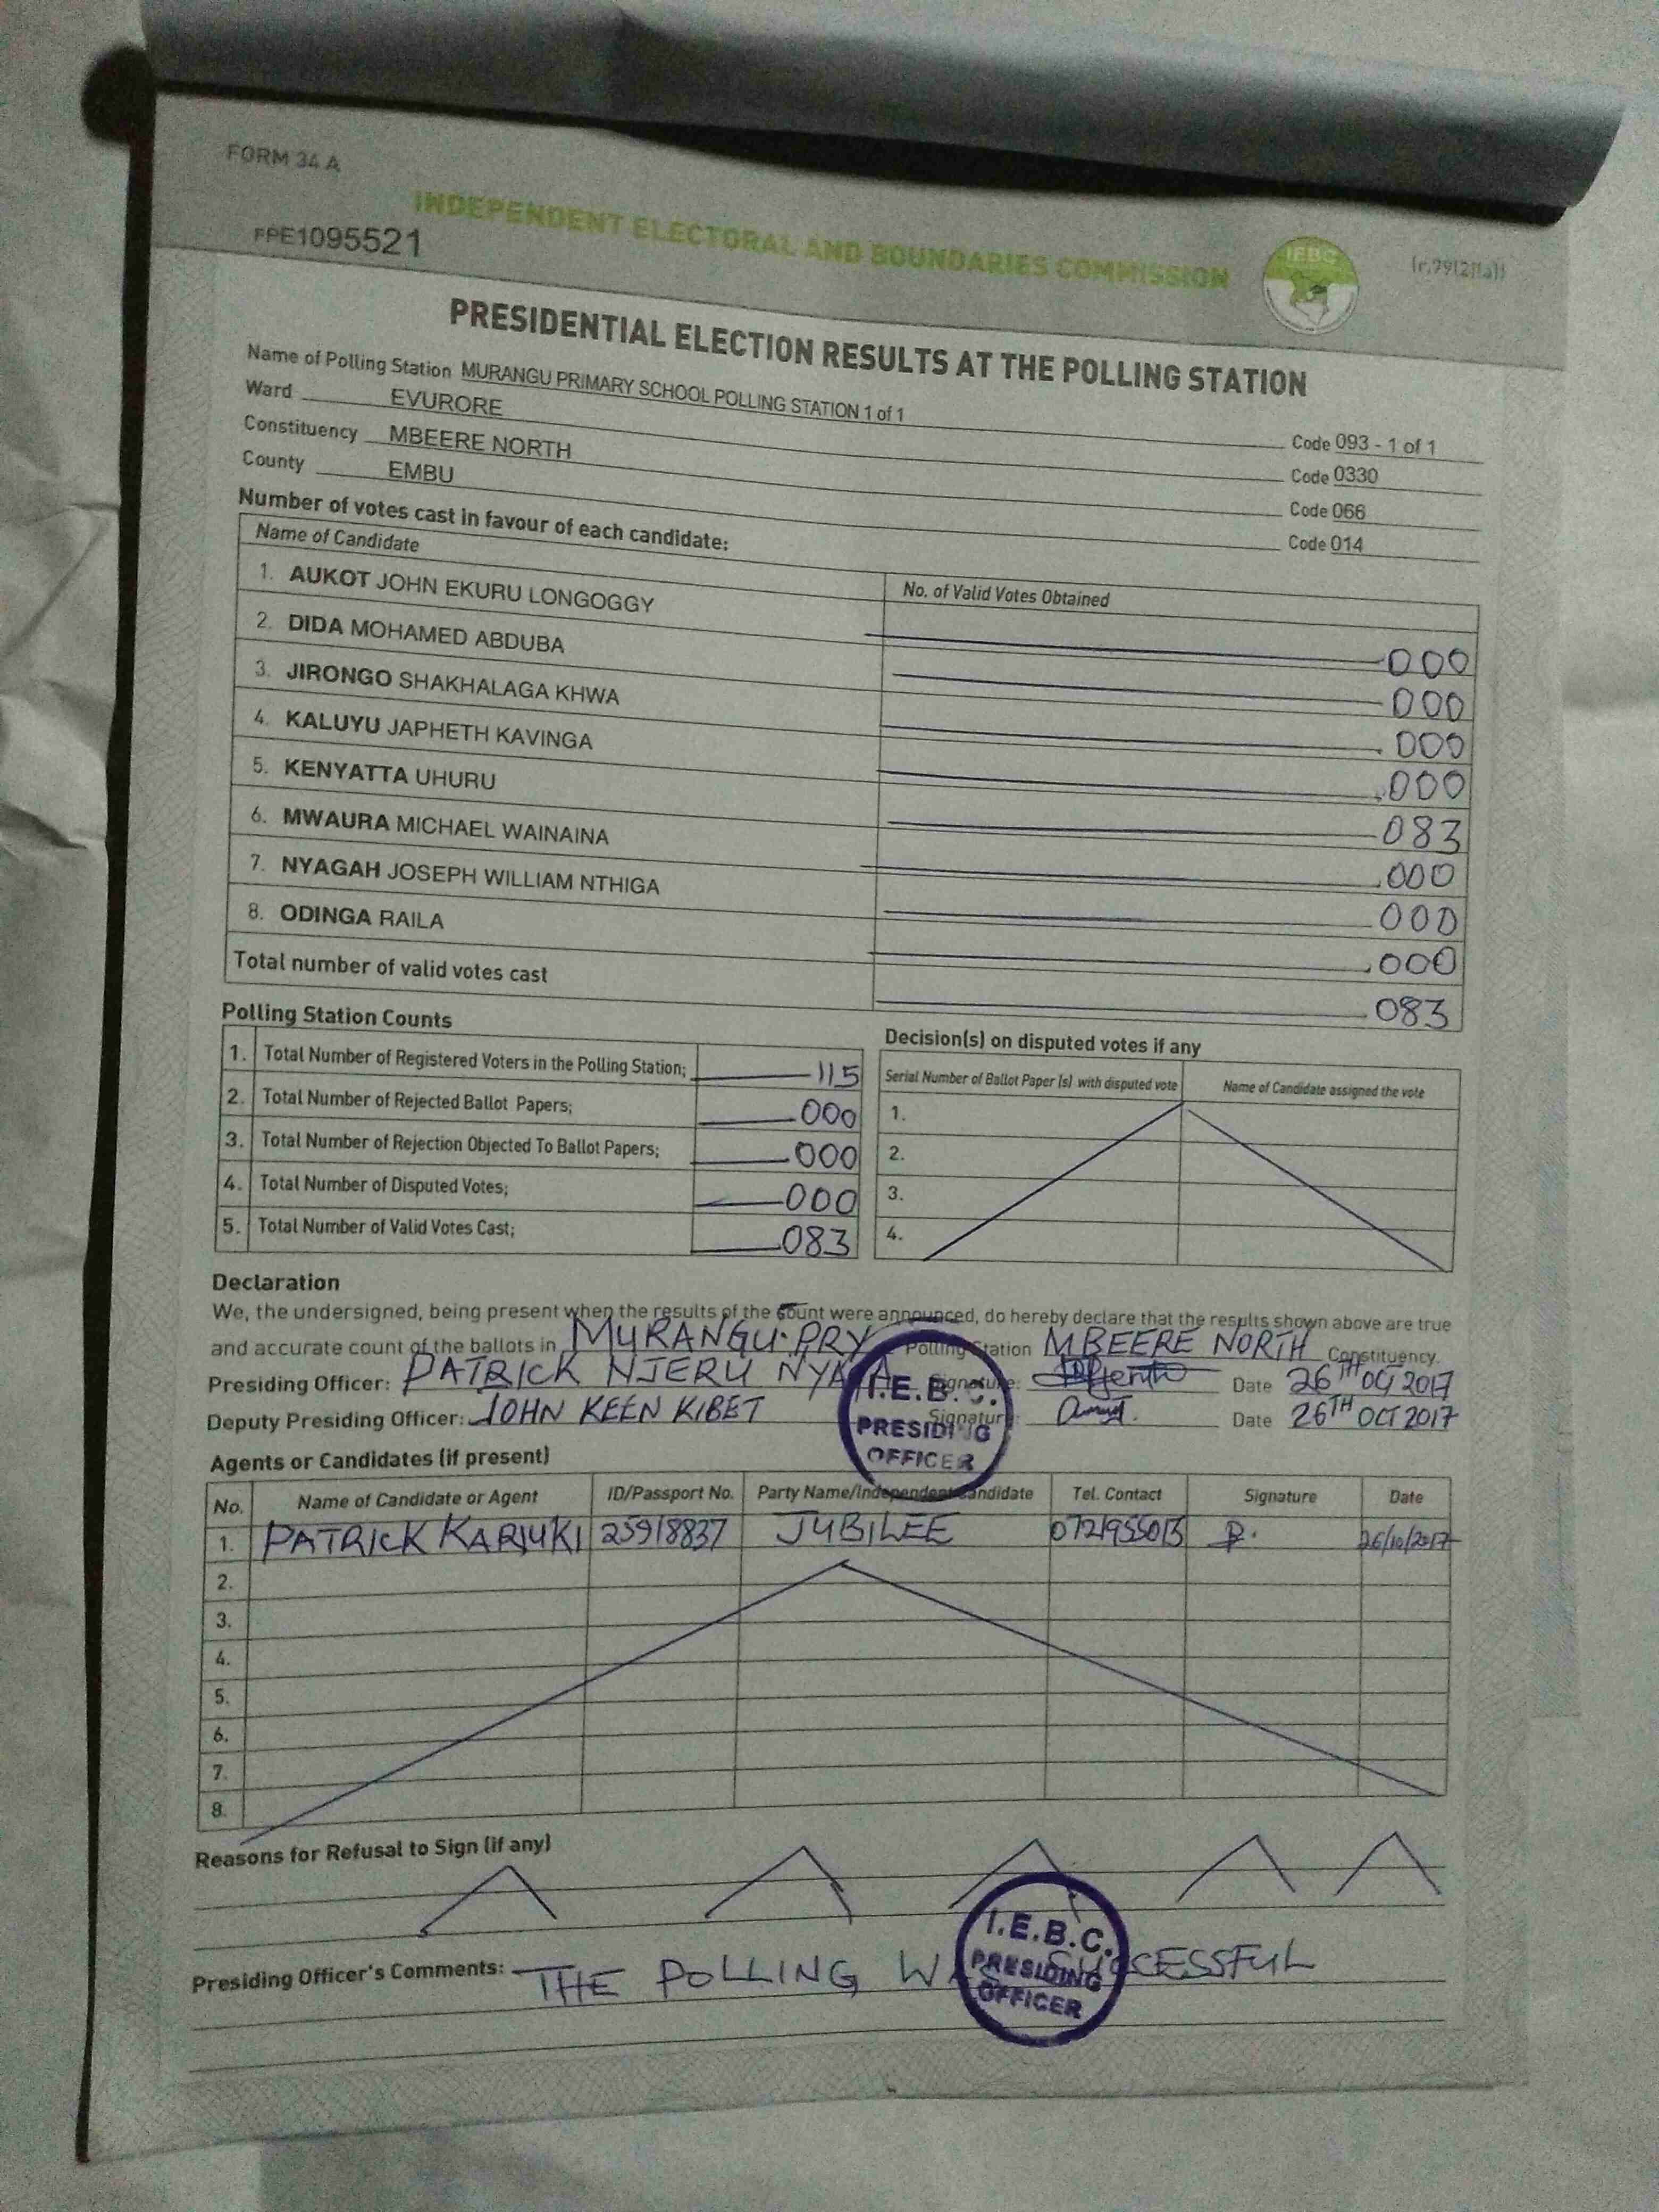 FORM 34 A
INDEPENDENT ELECTORAL AND BOUNDARIES COMMISSION
IEBC
(r.79(2)(a))
FPE1095521
PRESIDENTIAL ELECTION RESULTS AT THE POLLING STATION
Name of Polling Station MURANGU PRIMARY SCHOOL POLLING STATION 1 of 1 Code 093 - 1 of 1
Ward EVURORE Code 0330
Constituency MBEERE NORTH Code 066
County EMBU Code 014
Number of votes cast in favour of each candidate:
Name of Candidate No. of Valid Votes Obtained
1. AUKOT JOHN EKURU LONGOGGY 000
2. DIDA MOHAMED ABDUBA 000
3. JIRONGO SHAKHALAGA KHWA 000
4. KALUYU JAPHETH KAVINGA 000
5. KENYATTA UHURU 083
6. MWAURA MICHAEL WAINAINA 000
7. NYAGAH JOSEPH WILLIAM NTHIGA 000
8. ODINGA RAILA 000
Total number of valid votes cast 083
Polling Station Counts
1. Total Number of Registered Voters in the Polling Station; 115
2. Total Number of Rejected Ballot Papers; 000
3. Total Number of Rejection Objected To Ballot Papers; 000
4. Total Number of Disputed Votes; 000
5. Total Number of Valid Votes Cast; 083
Decision(s) on disputed votes if any
Serial Number of Ballot Paper (s) with disputed vote Name of Candidate assigned the vote
1.
2.
3.
4.
Declaration
We, the undersigned, being present when the results of the count were announced, do hereby declare that the results shown above are true
and accurate count of the ballots in MURANGU PRY Polling Station MBEERE NORTH Constituency.
Presiding Officer: PATRICK NJERU Signature: Date 26TH OCT 2017
Deputy Presiding Officer: JOHN KEEN KIBET Signature: Date 26TH OCT 2017
I.E.B.C.
PRESIDING
OFFICER
Agents or Candidates (if present)
No. Name of Candidate or Agent ID/Passport No. Party Name/Independent Candidate Tel. Contact Signature Date
1. PATRICK KARIUKI 25918837 JUBILEE 0721955013 P. 26/10/2017
2.
3.
4.
5.
6.
7.
8.
Reasons for Refusal to Sign (if any)
Presiding Officer's Comments: THE POLLING WAS SUCCESSFUL
I.E.B.C.
PRESIDING
OFFICER